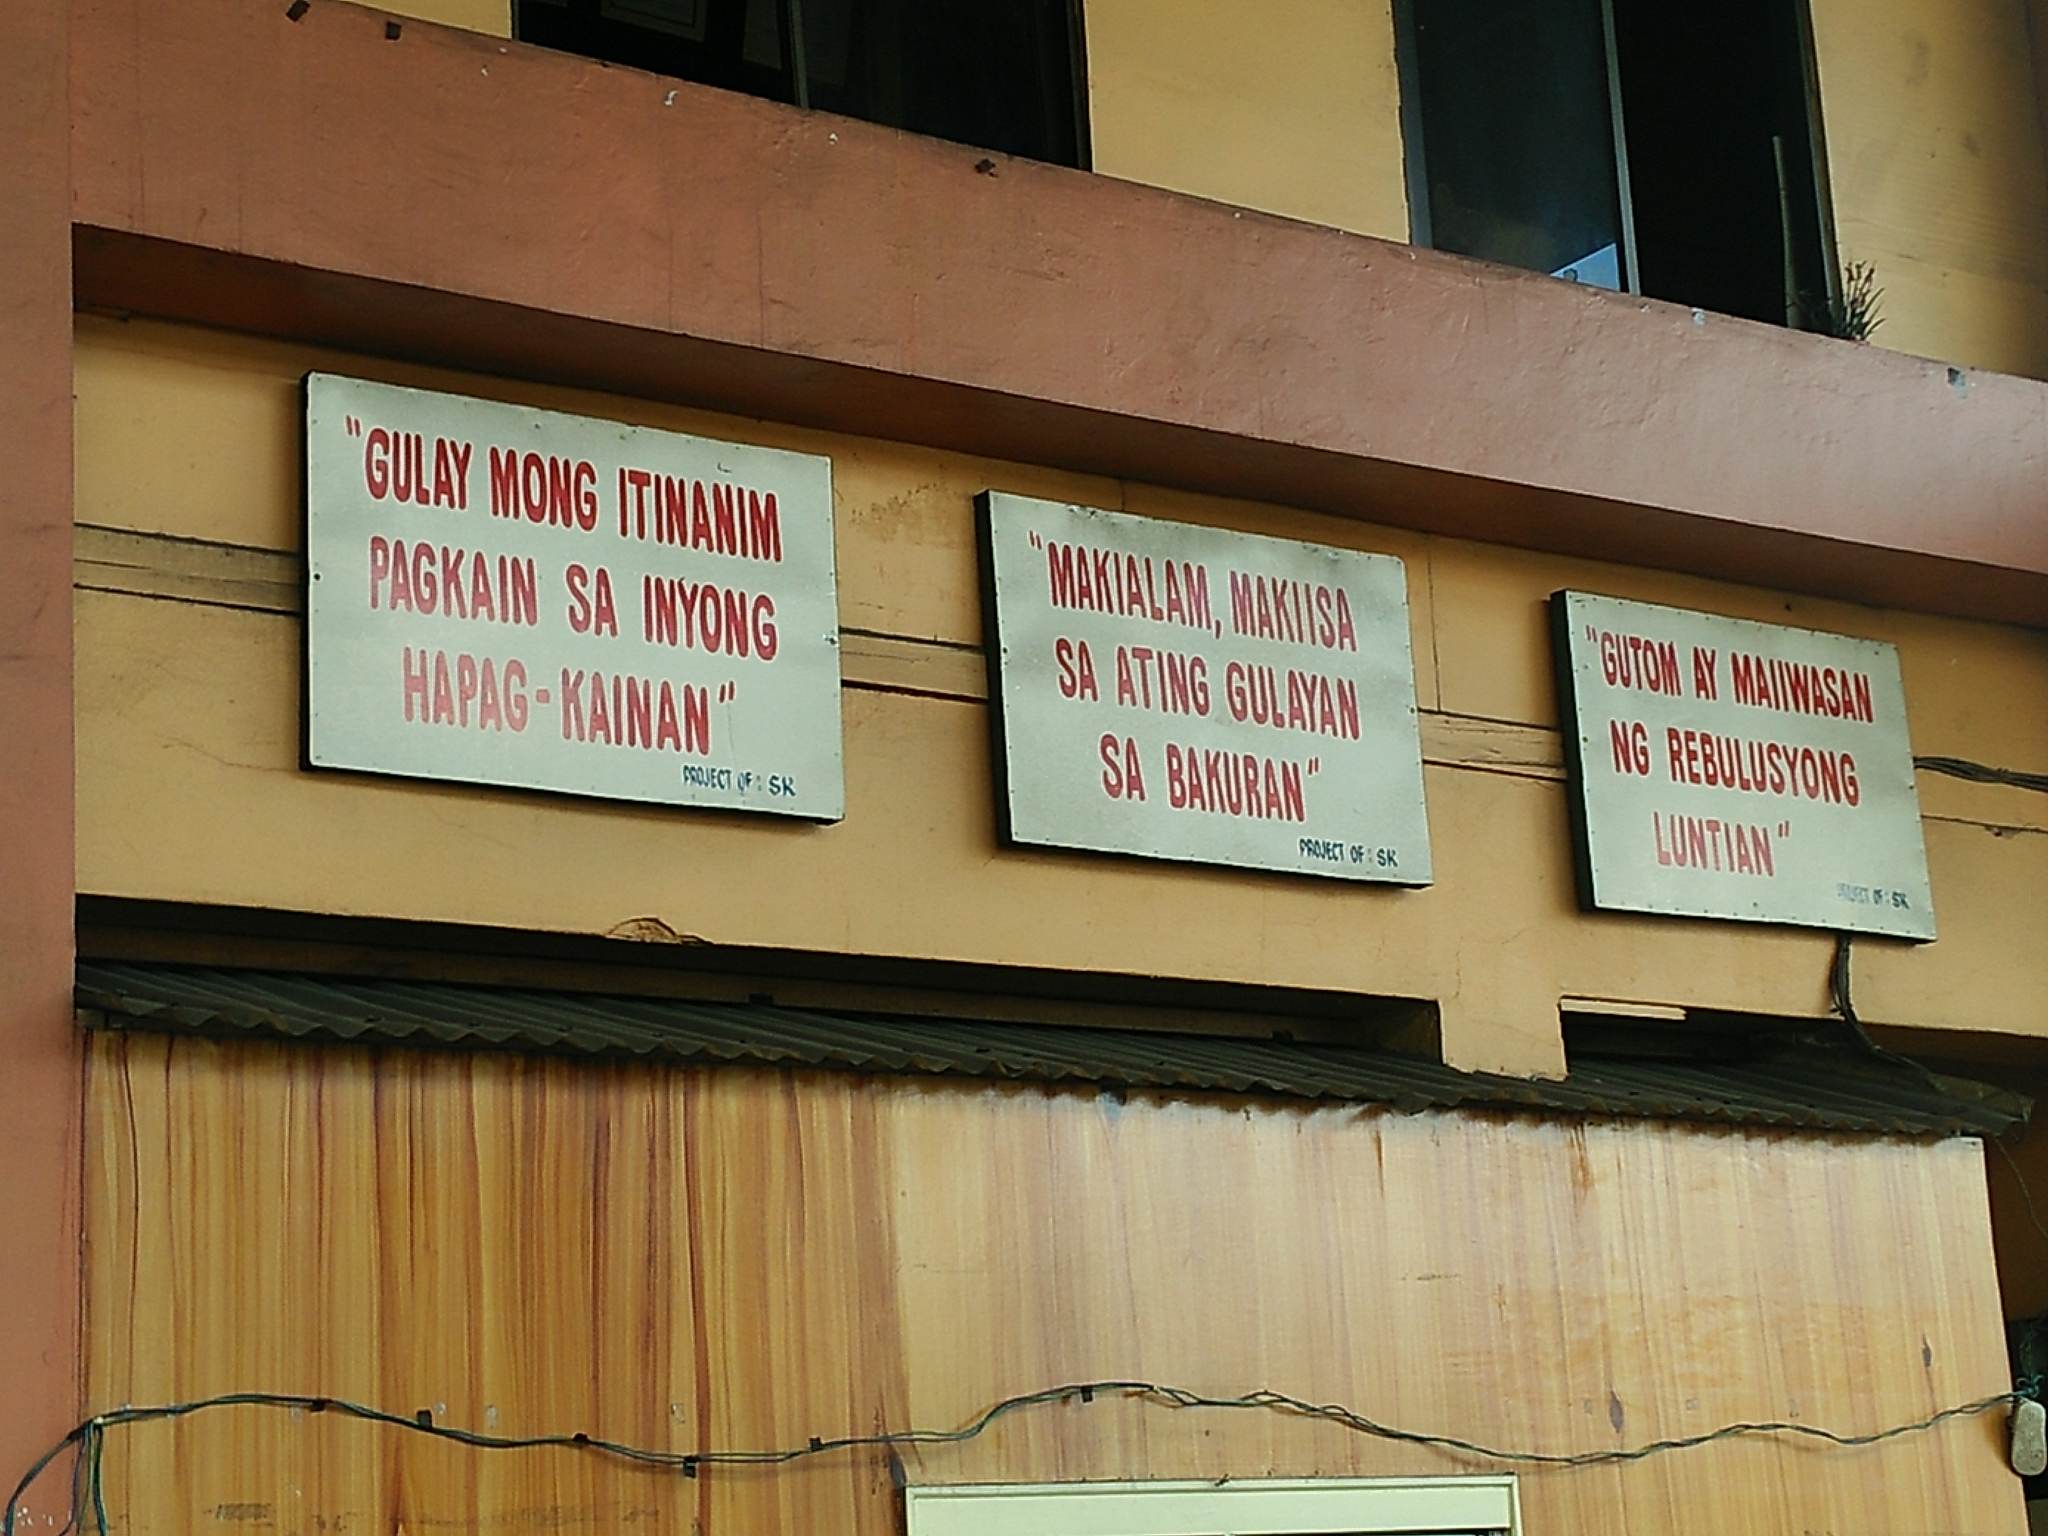 "GULAY MONG ITINANIM
PAGKAIN SA INYONG
HAPAG-KAINAN"
PROJECT OF: SK
"MAKIALAM, MAKIISA
SA ATING GULAYAN
SA BAKURAN"
PROJECT OF: SK
"GUTOM AY MAIIWASAN
NG REBULUSYONG
LUNTIAN"
PROJECT OF: SK